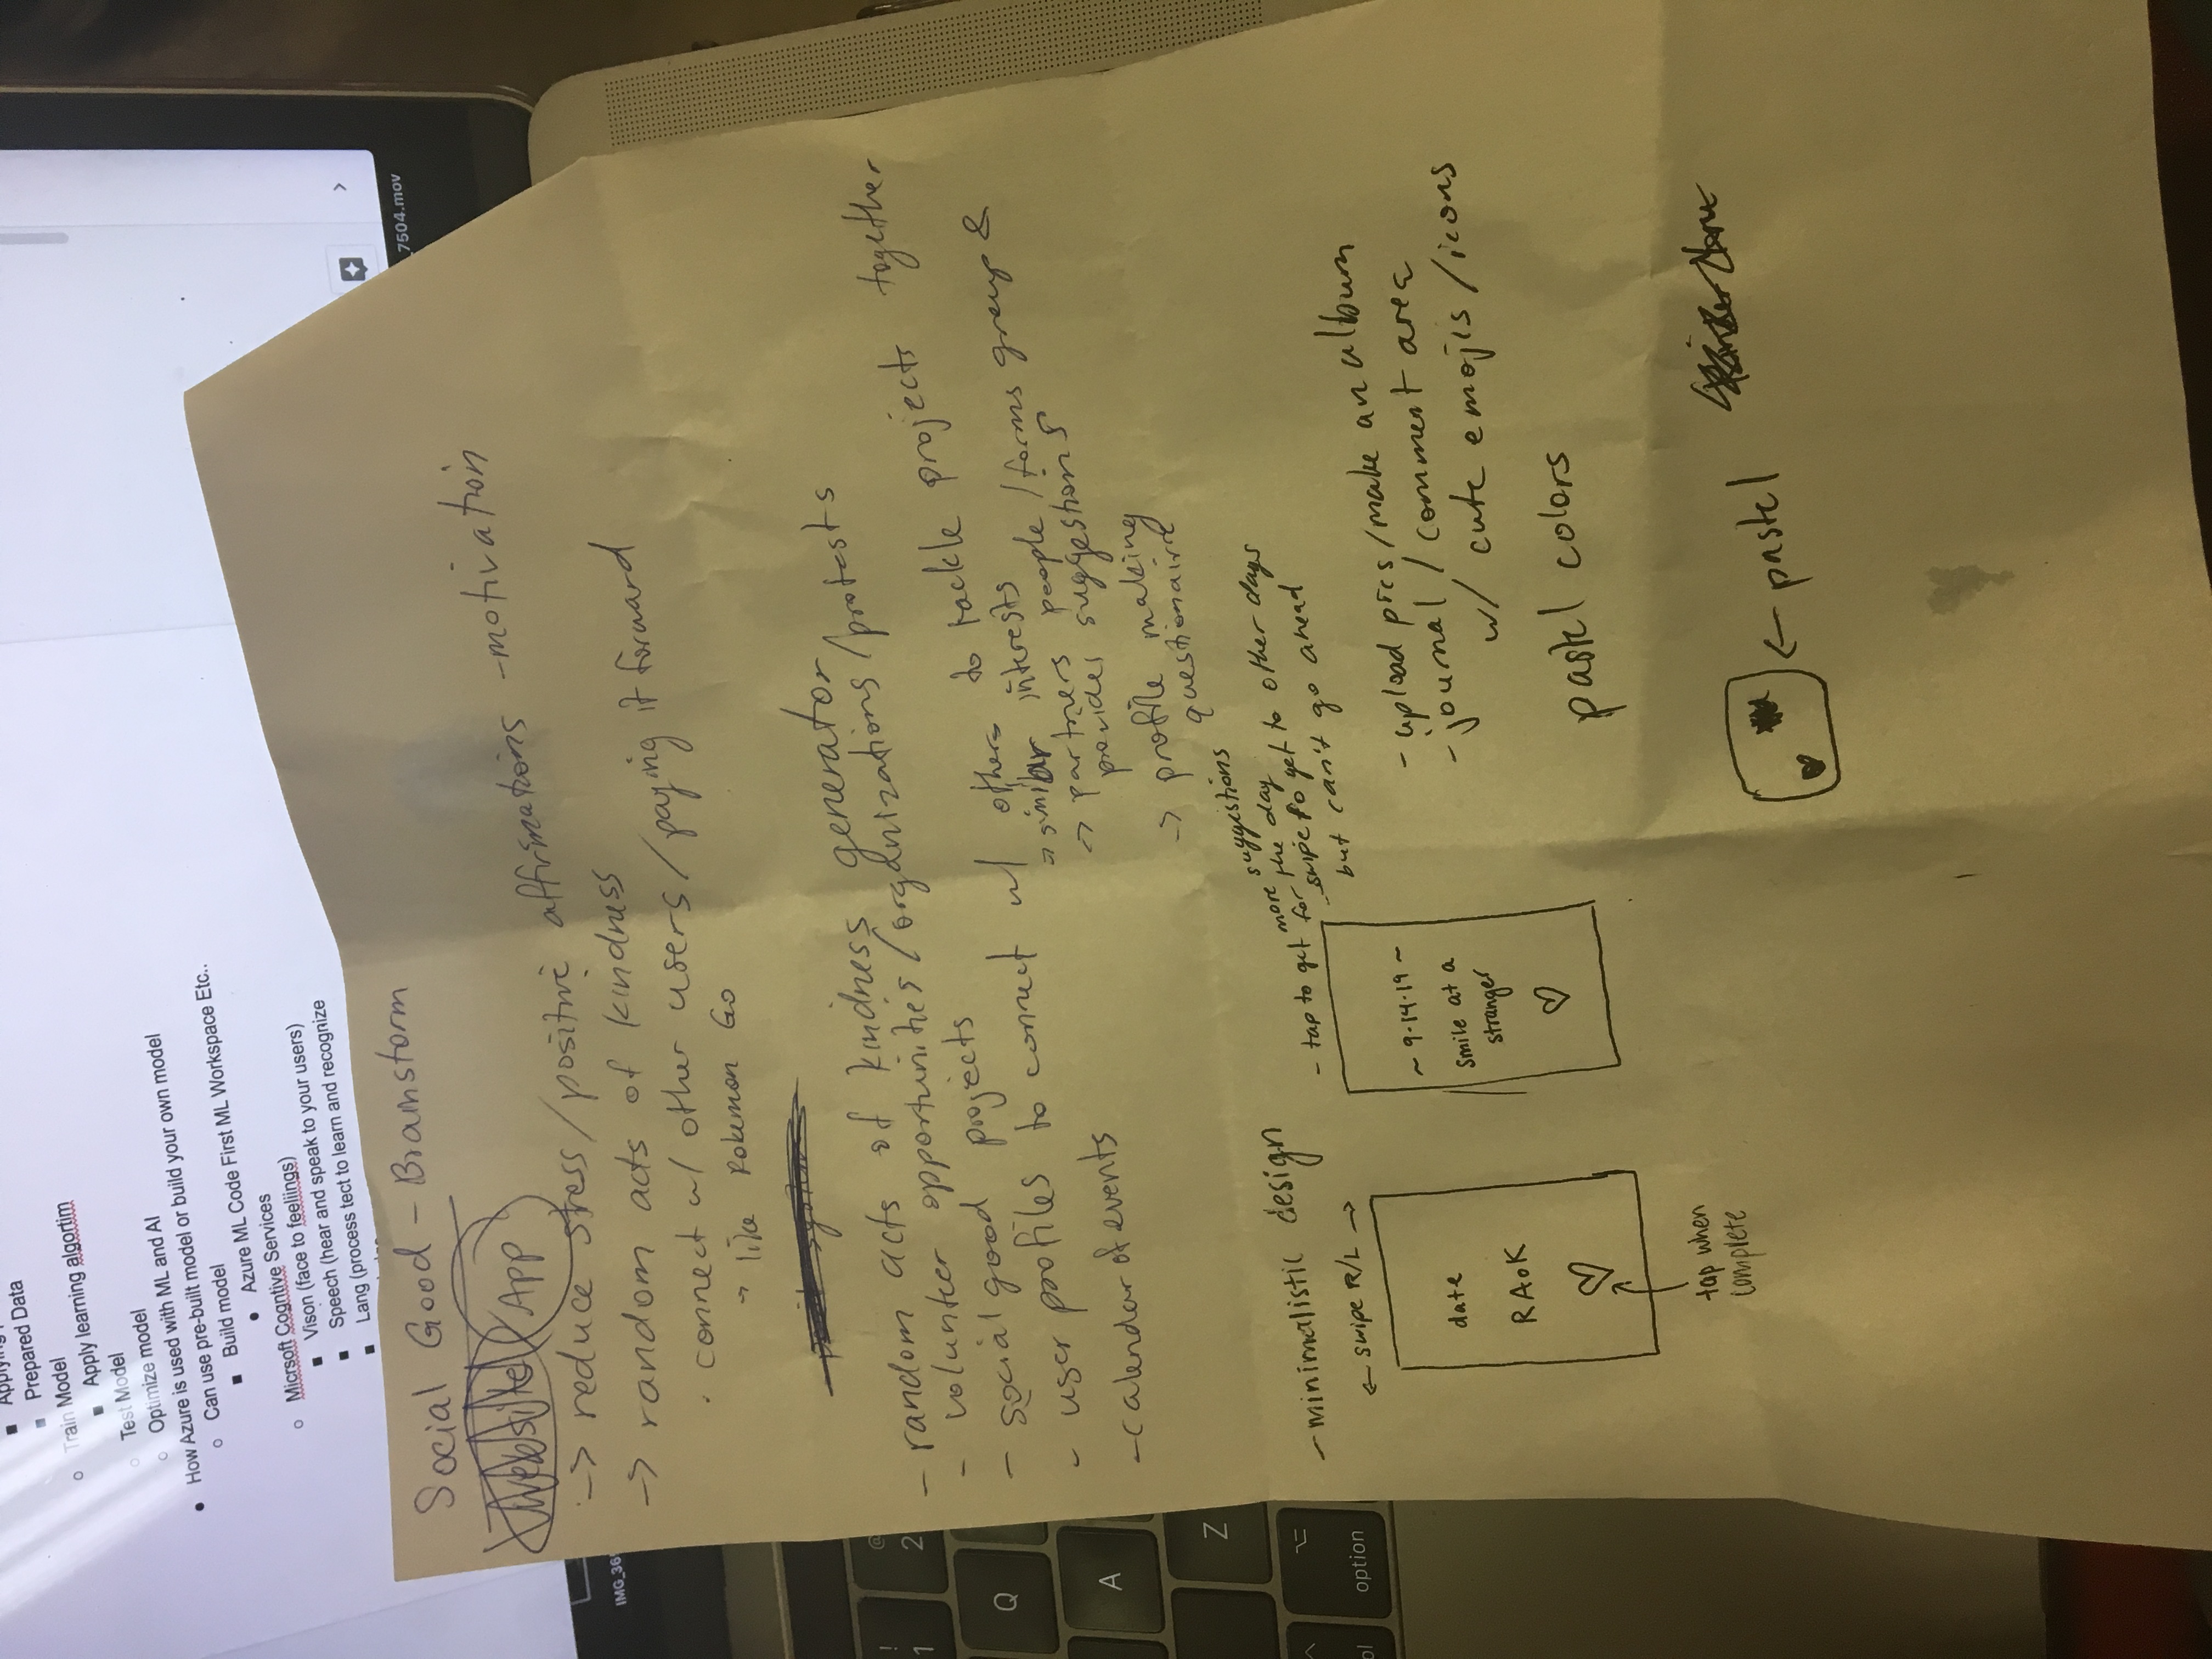 Prepared Data
Train Model
Apply learning algortim
Test Model
Optimize model
How Azure is used with ML and AI
Can use pre-built model or build your own model
Build model
Azure ML Code First ML Workspace Etc..
Micrsoft Cogntive Services
Vison (face to feeliings)
Speech (hear and speak to your users)
Lang (process tect to learn and recognize
_7504.mov
IMG_36
Social Good - Brainstorm
Website App
-> reduce stress/positive affrimations -motivation
-> random acts of kindness
· connect w/ other users/paying it forward
-> like Pokemon Go
- random acts of kindness generator
- volunteer opportunities/organizations/protests
- social good projects
- user profiles to connect w/ others to tackle projects together
-> similar interests
-> partners people/forms group &
provides suggestions
- calendar of events
-> profile making
questionairre
- minimalistic design
- tap to get more suggestions
for the day
- swipe to get to other days
but can't go ahead
← swipe R/L →
date
RAoK
♡
tap when
complete
~ 9.14.19 ~
Smile at a
stranger
♡
- upload pics/make an album
- journal/comment area
w/ cute emojis/icons
pastel colors
← pastel
! 1
@ 2
Q
A
Z
option